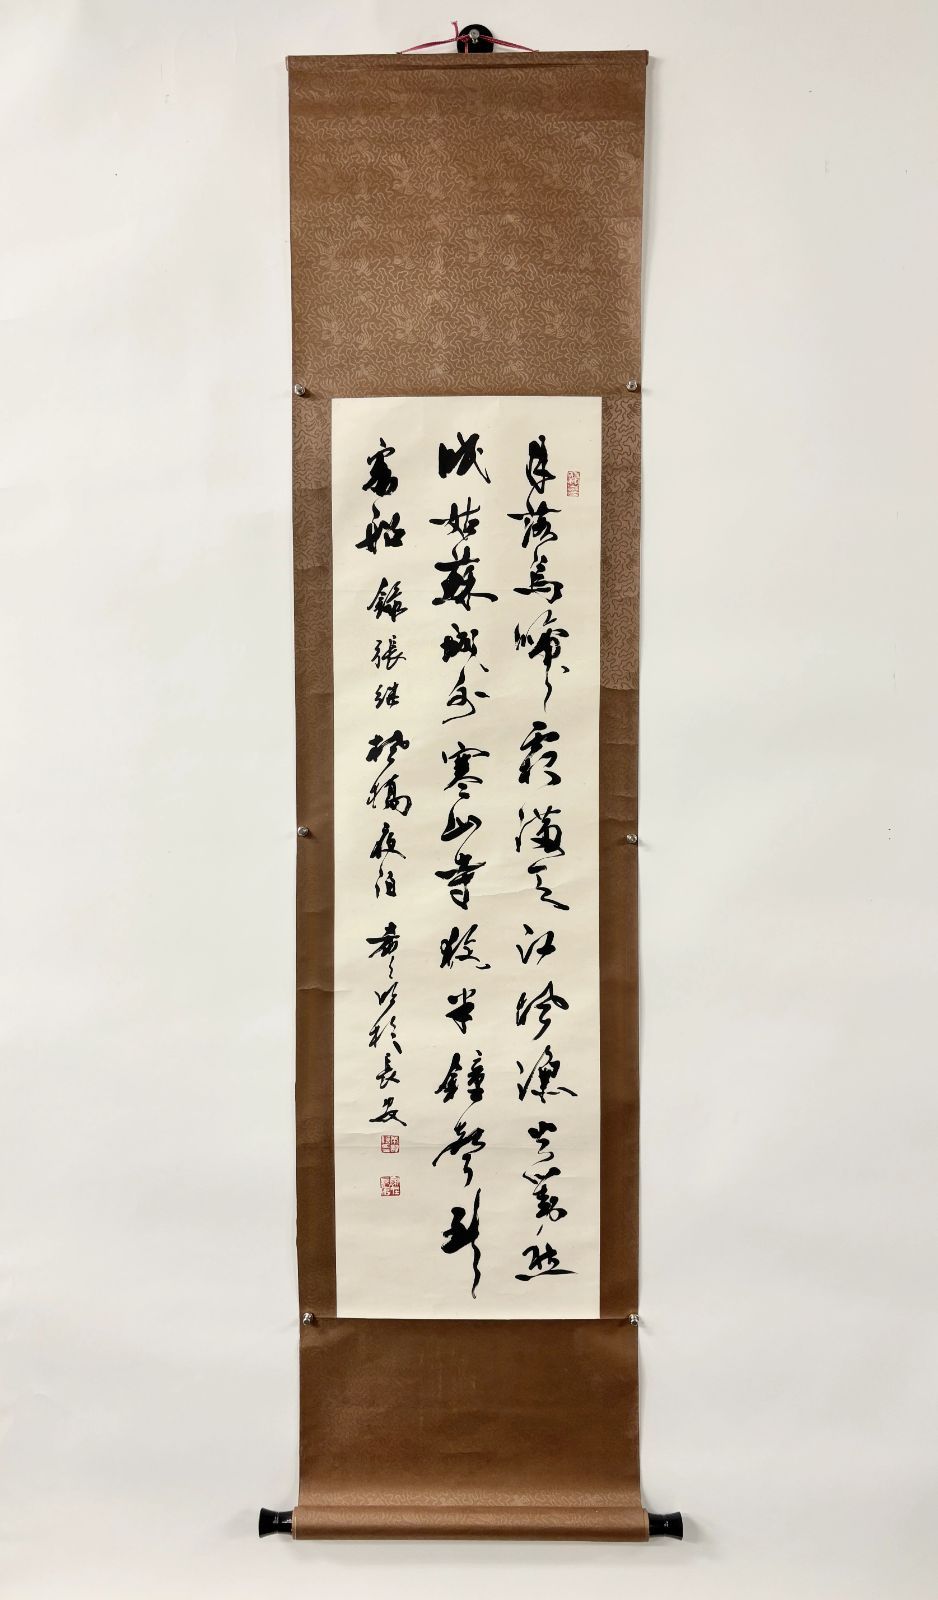 月落烏啼霜滿天江楓漁火對愁
眠姑蘇城外寒山寺夜半鐘聲到
客船 錄張継楓橋夜泊 於長安